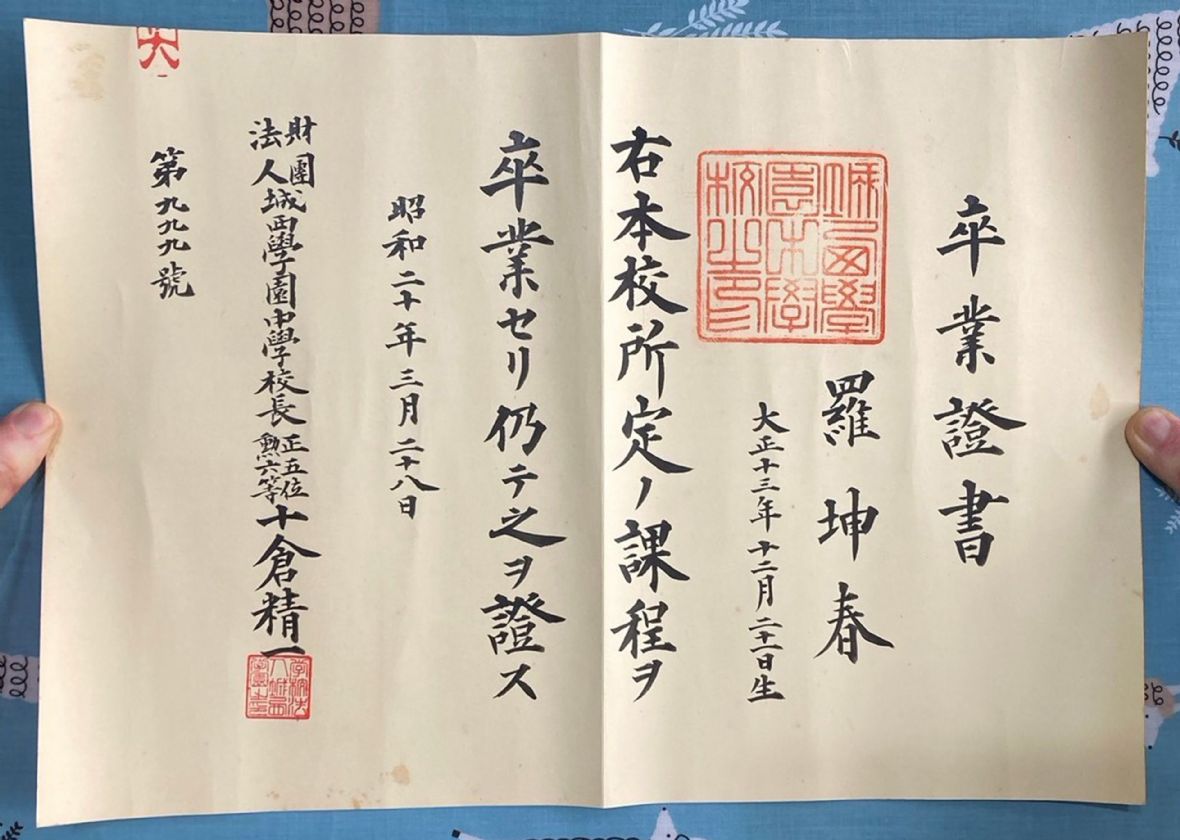 卒業證書
城西學
園中學
校之印
羅坤春
大正十三年十二月二十一日生
右本校所定ノ課程ヲ
卒業セリ仍テ之ヲ證ス
昭和二十年三月二十八日
財團法人城西學園中學校長正五位勲六等十倉精一
第九九九號